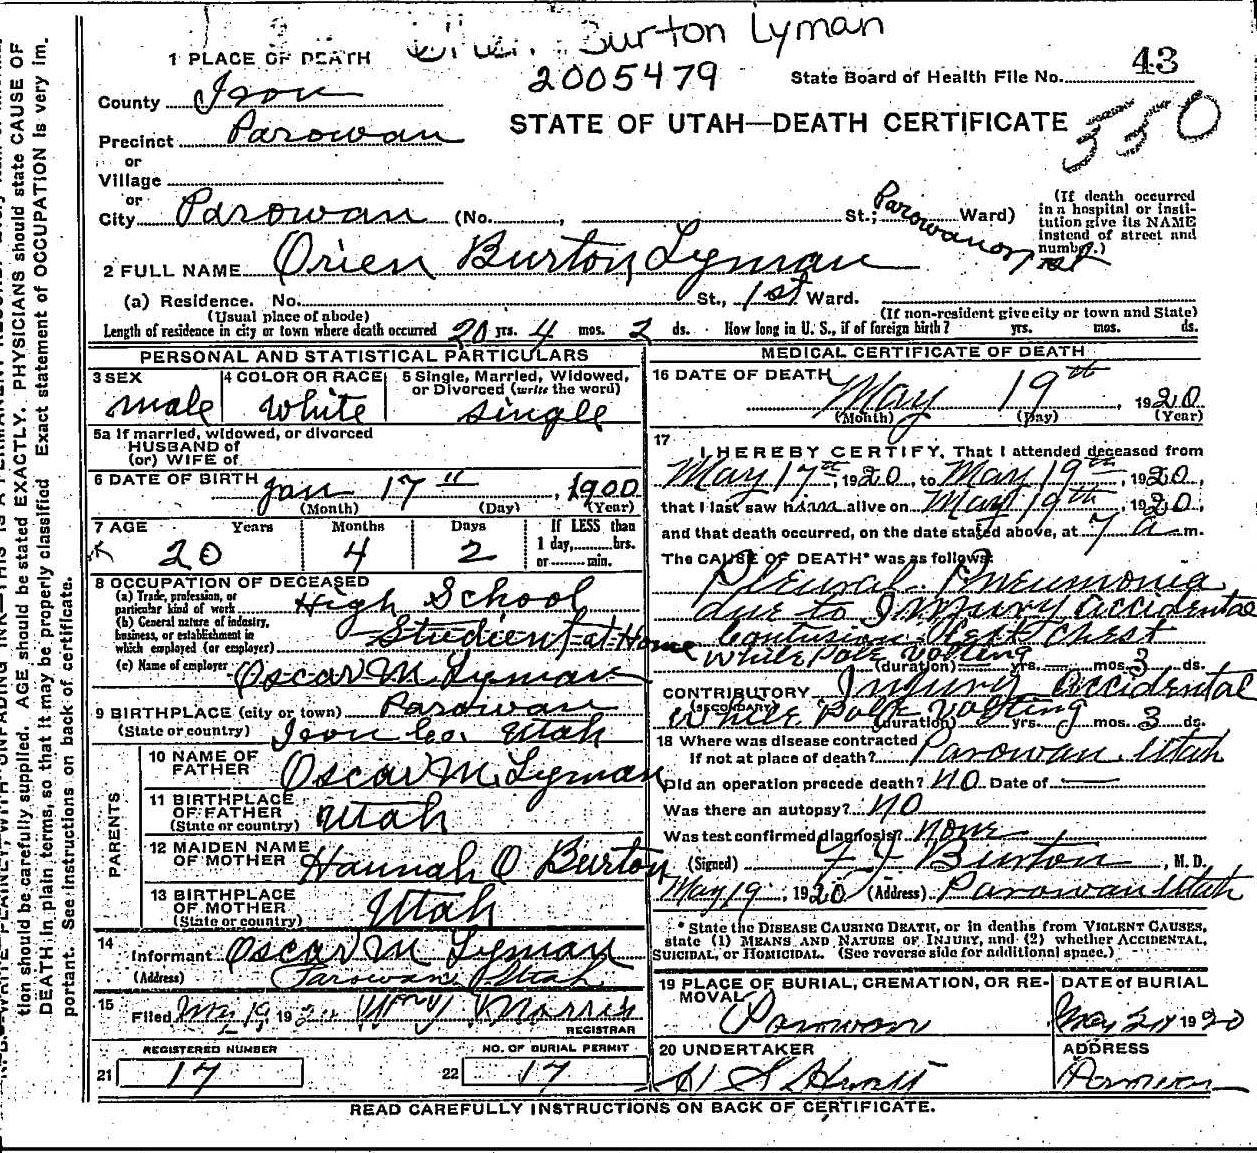 Burton Lyman
2005479
1 PLACE OF DEATH
State Board of Health File No. 43
County Iron
STATE OF UTAH—DEATH CERTIFICATE 550
Precinct Parowan
or
Village
or
City Parowan (No. , St.; Parowan Ward)
(If death occurred in a hospital or insti-
tution give its NAME
instead of street and
number.)
2 FULL NAME Orien Burton Lyman
(a) Residence. No. St., 1st Ward.
(Usual place of abode)
(If non-resident give city or town and State)
Length of residence in city or town where death occurred 20 yrs. 4 mos. 2 ds. How long in U. S., if of foreign birth? yrs. mos. ds.
PERSONAL AND STATISTICAL PARTICULARS
3 SEX
male
4 COLOR OR RACE
White
5 Single, Married, Widowed,
or Divorced (write the word)
single
5a If married, widowed, or divorced
HUSBAND of
(or) WIFE of
6 DATE OF BIRTH Jan 17", 1900
(Month) (Day) (Year)
7 AGE Years Months Days If LESS than
1 day, hrs.
or min.
20 4 2
8 OCCUPATION OF DECEASED
(a) Trade, profession, or
particular kind of work High School
(b) General nature of industry,
business, or establishment in
which employed (or employer) Student at Home
(c) Name of employer Oscar M. Lyman
9 BIRTHPLACE (city or town) Parowan
(State or country) Iron Co. Utah
PARENTS
10 NAME OF
FATHER Oscar M. Lyman
11 BIRTHPLACE
OF FATHER
(State or country) Utah
12 MAIDEN NAME
OF MOTHER Hannah O Burton
13 BIRTHPLACE
OF MOTHER
(State or country) Utah
14
Informant Oscar M Lyman
(Address) Parowan Utah
15
Filed May 19, 1920 Wm Morris
REGISTRAR
REGISTERED NUMBER
21 17
NO. OF BURIAL PERMIT
22 17
MEDICAL CERTIFICATE OF DEATH
16 DATE OF DEATH
May 19th, 1920
(Month) (Day) (Year)
17
I HEREBY CERTIFY, That I attended deceased from
May 17th, 1920, to May 19th, 1920,
that I last saw him alive on May 19th, 1920,
and that death occurred, on the date stated above, at 7 a m.
The CAUSE OF DEATH* was as follows:
Pleural Pneumonia
due to Injury accidental
Contusion Left Chest
While Pole Volting
(duration) yrs. mos. 3 ds.
CONTRIBUTORY Injury accidental
(SECONDARY)
While Pole Volting
(duration) yrs. mos. 3 ds.
18 Where was disease contracted
If not at place of death? Parowan Utah
Did an operation precede death? no Date of
Was there an autopsy? no
Was test confirmed diagnosis? none
(Signed) Burton, M. D.
May 19, 1920 (Address) Parowan Utah
* State the DISEASE CAUSING DEATH, or in deaths from VIOLENT CAUSES,
state (1) MEANS AND NATURE OF INJURY, and (2) whether ACCIDENTAL,
SUICIDAL, or HOMICIDAL. (See reverse side for additional space.)
19 PLACE OF BURIAL, CREMATION, OR RE-
MOVAL
Parowan
DATE of BURIAL
May 1920
20 UNDERTAKER
ADDRESS
Parowan
READ CAREFULLY INSTRUCTIONS ON BACK OF CERTIFICATE.
tion should be carefully supplied. AGE should be stated EXACTLY. PHYSICIANS should state CAUSE OF
DEATH in plain terms, so that it may be properly classified. Exact statement of OCCUPATION is very im-
portant. See instructions on back of certificate.